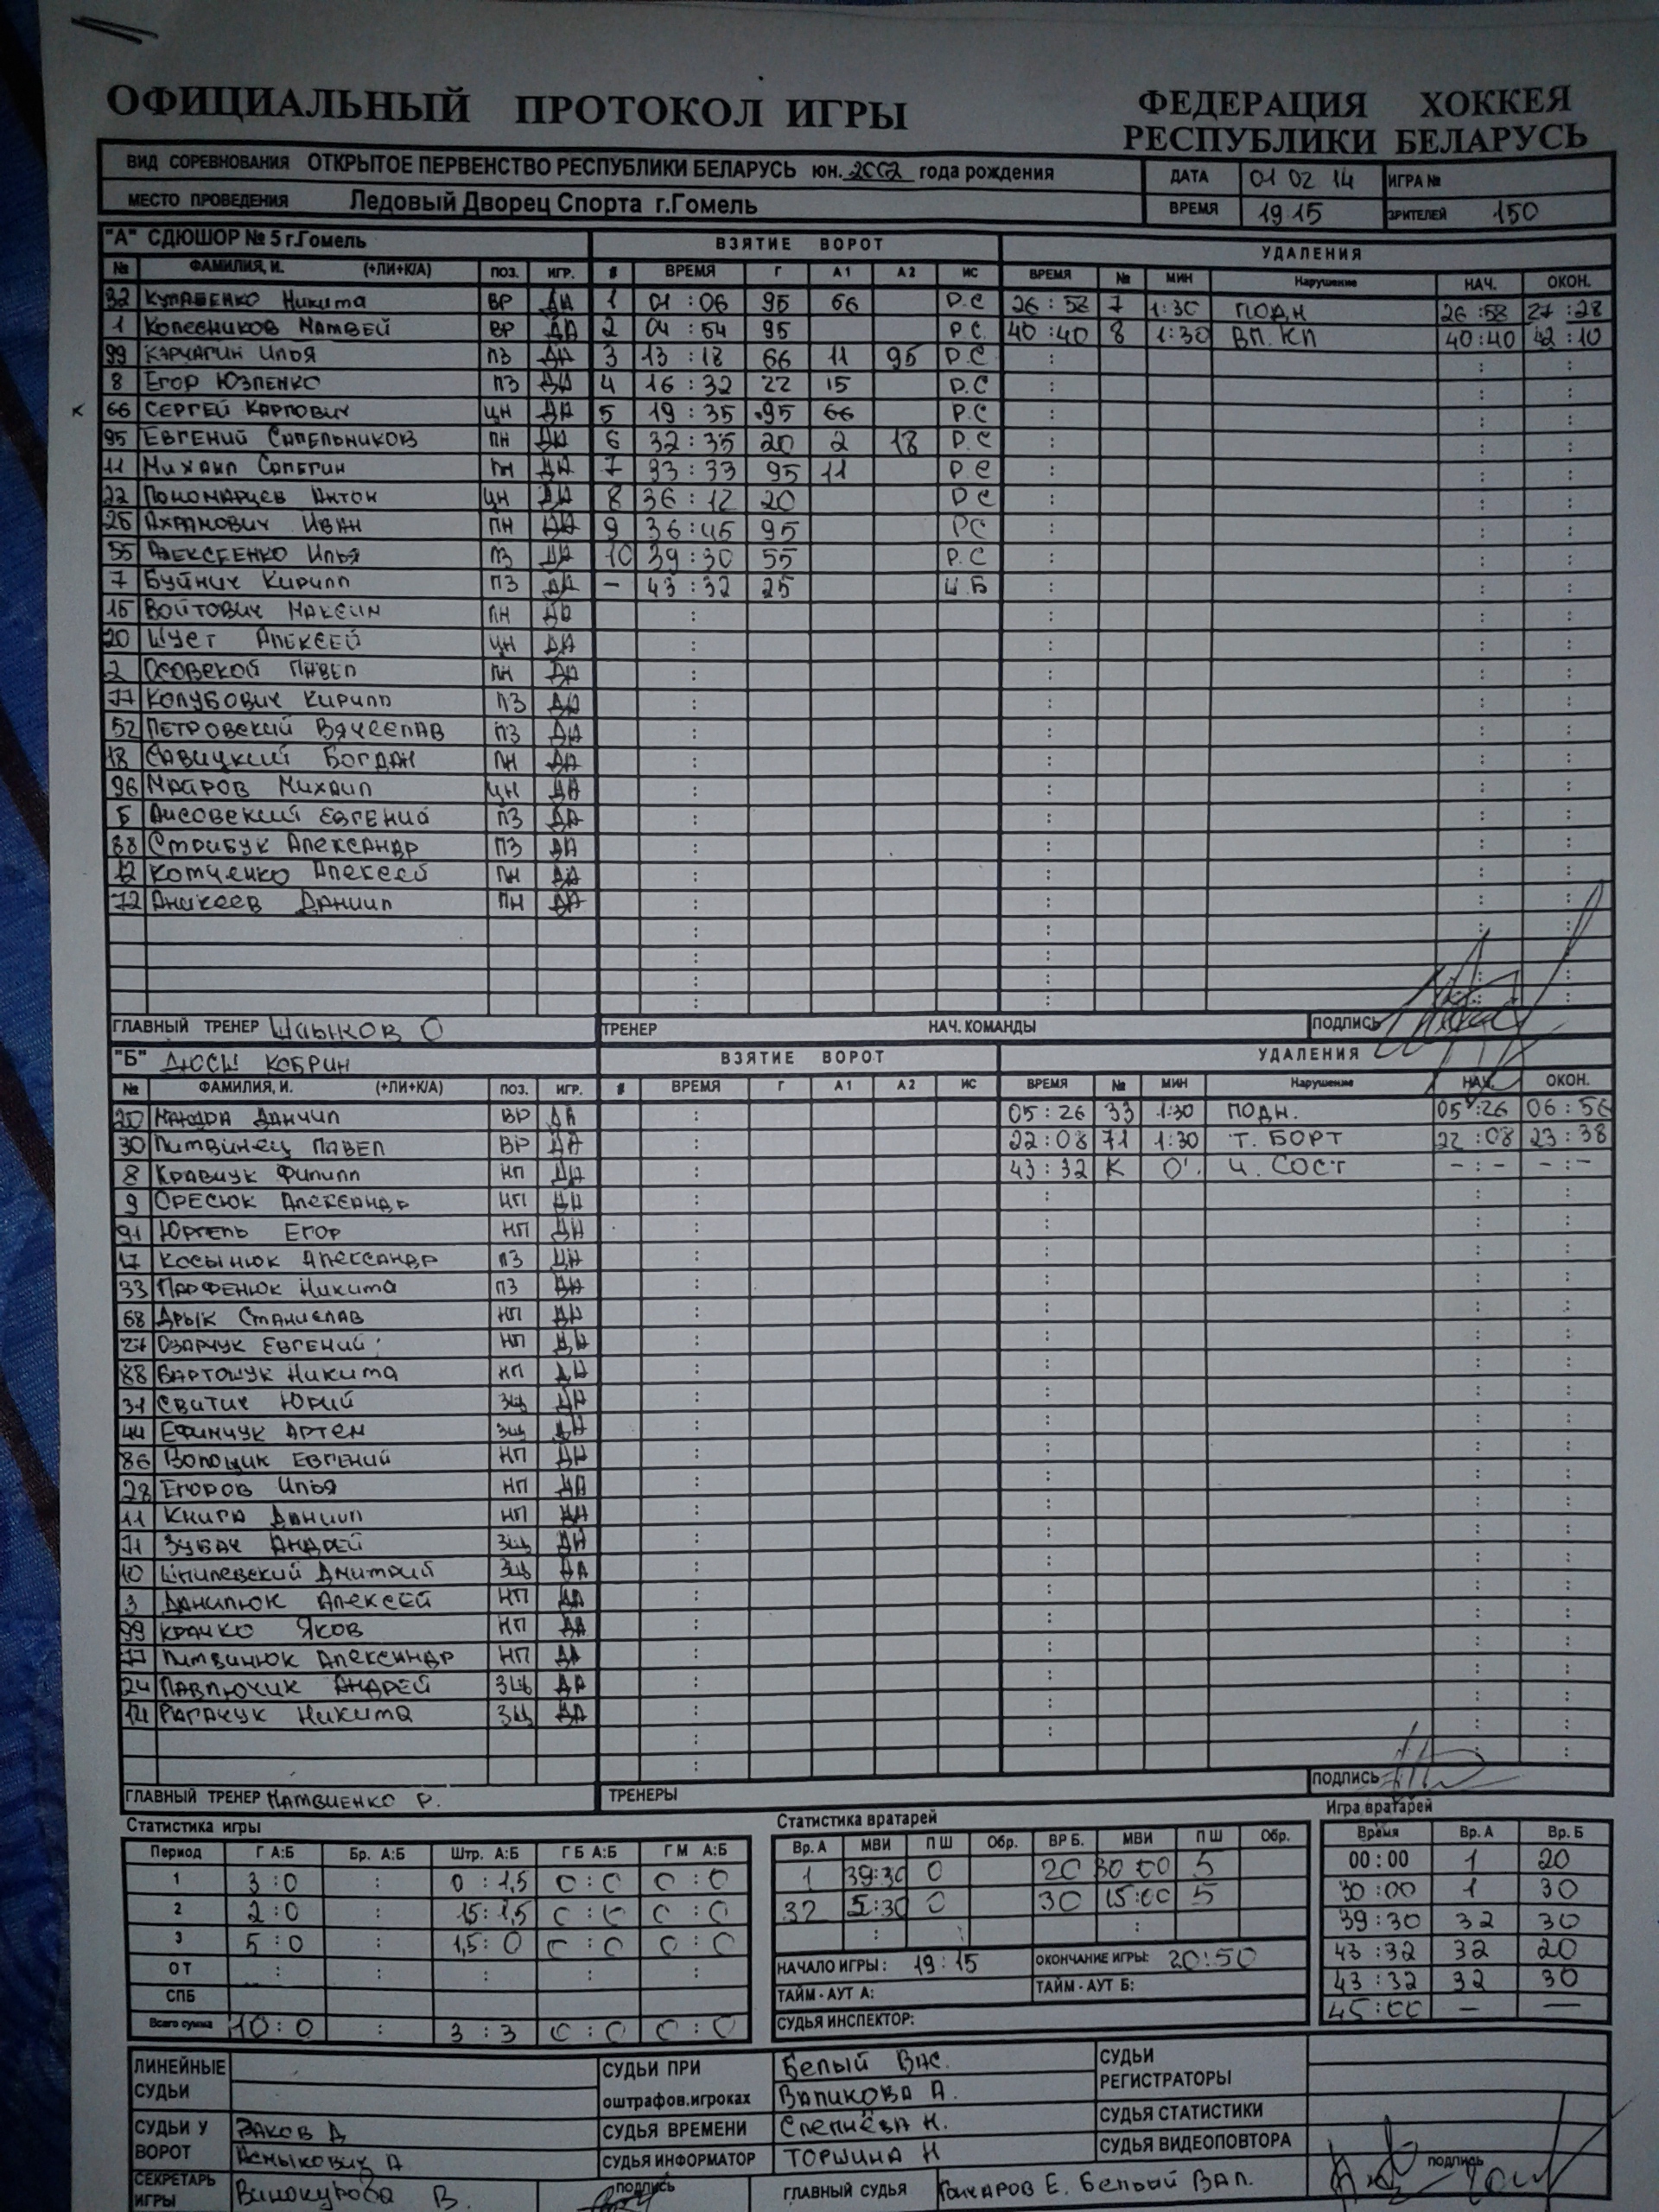 ОФИЦИАЛЬНЫЙ ПРОТОКОЛ ИГРЫ
ФЕДЕРАЦИЯ ХОККЕЯ
РЕСПУБЛИКИ БЕЛАРУСЬ
ВИД СОРЕВНОВАНИЯ ОТКРЫТОЕ ПЕРВЕНСТВО РЕСПУБЛИКИ БЕЛАРУСЬ юн. 2002 года рождения ДАТА 01 02 14 ИГРА №
МЕСТО ПРОВЕДЕНИЯ Ледовый Дворец Спорта г.Гомель ВРЕМЯ 19 15 ЗРИТЕЛЕЙ 150
"А" СДЮШОР № 5 г.Гомель ВЗЯТИЕ ВОРОТ УДАЛЕНИЯ
№ ФАМИЛИЯ, И. (+ЛИ+К/А) ПОЗ. ИГР. # ВРЕМЯ Г А1 А2 ИС ВРЕМЯ № МИН Нарушение НАЧ. ОКОН.
32 Никита ВР ДА 1 01 : 06 95 66 Р.С 26 : 58 7 1:30 ПОДН 26 :58 27 :28
1 Колесников Матвей ВР ДА 2 04 : 54 95 Р.С. 40 :40 8 1:30 ВП. КП 40:40 42 :10
99 Карчагин Илья ПЗ ДА 3 13 : 18 66 11 95 Р.С :
8 Егор Юзленко ПЗ ДА 4 16 : 32 22 15 Р.С :
К 66 Сергей Карпович ЦН ДА 5 19 : 35 95 66 Р.С :
95 Евгений Сапельников ПН ДА 6 32 : 35 20 2 18 Р.С :
11 Михаил Сапегин ПН ДА 7 33 : 33 95 11 Р.С :
22 Пономарцев Антон ЦН ДА 8 36 : 12 20 Р С :
25 Ахрамович Иван ПН ДА 9 36 : 45 95 РС :
55 Алексеенко Илья ПЗ ДА 10 39 : 30 55 Р.С :
7 Буйнич Кирилл ПЗ ДА – 43 : 32 25 Ш.Б :
15 Войтович Максим ПН ДА : :
20 Шуст Алексей ЦН ДА : :
2 Осовской Павел ПН ДА : :
77 Колубович Кирилл ПЗ ДА : :
52 Петровский Вячеслав ПЗ ДА : :
18 Савицкий Богдан ПН ДА : :
96 Майров Михаил ЦН ДА : :
5 Лисовский Евгений ПЗ ДА : :
88 Стрибук Александр ПЗ ДА : :
12 Котченко Алексей ПН ДА : :
72 Аникеев Даниил ПН ДА : :
ГЛАВНЫЙ ТРЕНЕР О ТРЕНЕР НАЧ. КОМАНДЫ ПОДПИСЬ
"Б" ДЮСШ Кобрин ВЗЯТИЕ ВОРОТ УДАЛЕНИЯ
№ ФАМИЛИЯ, И. (+ЛИ+К/А) ПОЗ. ИГР. # ВРЕМЯ Г А1 А2 ИС ВРЕМЯ № МИН Нарушение НАЧ. ОКОН.
20 Данчил ВР ДА : 05 : 26 33 1:30 ПОДН. 05 :26 06 : 56
30 Литвинец Павел ВР ДА : 22 : 08 71 1:30 Т. БОРТ 22 :08 23 : 38
8 Кравчук Филипп НП ДА : 43 : 32 К 0'. Ч. СОСТ – : – – : –
9 Оресюк Александр НП ДА : :
91 Юргель Егор НП ДА : :
17 Косынюк Александр ПЗ ДА : :
33 Парфенюк Никита ПЗ ДА : :
68 Дрык Станислав НП ДА : :
27 Озарчук Евгений НП ДА : :
88 Бартошук Никита НП ДА : :
31 Свитич Юрий ЗЩ ДА : :
44 Ефимчук Артем ЗЩ ДА : :
86 Волощик Евгений НП ДА : :
28 Егоров Илья НП ДА : :
11 Книга Даниил НП ДА : :
71 Зубач Андрей ЗЩ ДА : :
10 Шпилевский Дмитрий ЗЩ ДА : :
3 Данилюк Алексей НП ДА : :
99 Крачко Яков НП ДА : :
77 Литвинюк Александр НП ДА : :
24 Павлючик Андрей ЗЩ ДА : :
14 Рагачук Никита ЗЩ ДА : :
ГЛАВНЫЙ ТРЕНЕР Матвиенко Р. ТРЕНЕРЫ ПОДПИСЬ
Статистика игры Статистика вратарей Игра вратарей
Период Г А:Б Бр. А:Б Штр. А:Б Г Б А:Б Г М А:Б
1 3 : 0 : 0 : 1,5 0 : 0 0 : 0
2 2 : 0 : 15 : 1,5 0 : 0 0 : 0
3 5 : 0 : 1,5 : 0 0 : 0 0 : 0
ОТ : : : : :
СПБ
Всего сумма 10 : 0 : 3 : 3 0 : 0 0 : 0
Вр. А МВИ П Ш Обр. ВР Б. МВИ П Ш Обр.
1 39:30 0 20 30 00 5
32 5:30 0 30 15:00 5
НАЧАЛО ИГРЫ : 19 : 15 ОКОНЧАНИЕ ИГРЫ: 20:50
ТАЙМ - АУТ А: ТАЙМ - АУТ Б:
СУДЬЯ ИНСПЕКТОР:
Время Вр. А Вр. Б
00 : 00 1 20
30 : 00 1 30
39 : 30 32 30
43 : 32 32 20
43 : 32 32 30
45 : 00 — —
ЛИНЕЙНЫЕ СУДЬИ
СУДЬИ ПРИ оштрафов.игроках Белый Вас.
Валикова А.
СУДЬИ РЕГИСТРАТОРЫ
СУДЬИ У ВОРОТ Раков Д
Асмыкович А
СУДЬЯ ВРЕМЕНИ Слепнёва Н.
СУДЬЯ ИНФОРМАТОР Торшина Н
СУДЬЯ СТАТИСТИКИ
СУДЬЯ ВИДЕОПОВТОРА
СЕКРЕТАРЬ ИГРЫ Винокурова В. ПОДПИСЬ ГЛАВНЫЙ СУДЬЯ Гончаров Е. Белый Вал. ПОДПИСЬ